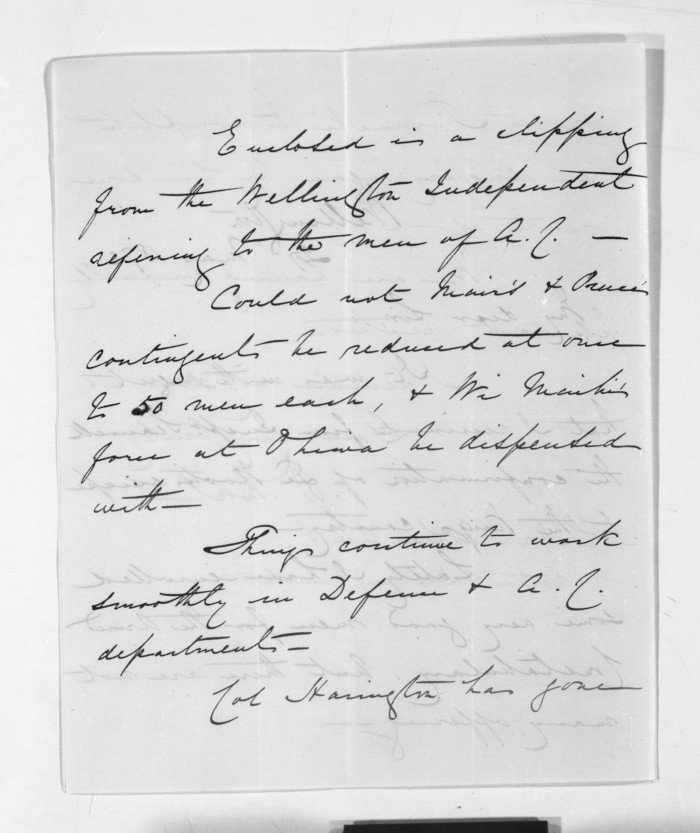 Enclosed is a clipping
from the Wellington Independent
refering to the men of A. C. —
Could not Mair's & Preece's
contingents be reduced at once
to 50 men each, & Wi Maihi's
force at Ohiwa be dispensed
with —
Things continue to work
smoothly in Defence & A. C.
departments —
Col Harington has gone